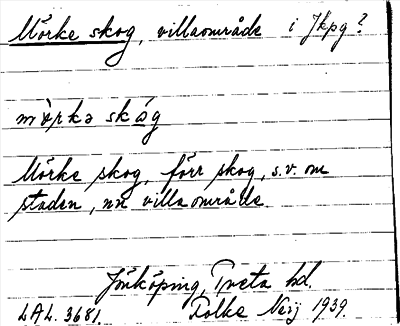 Mörke skog, villaområde i Jkpg?
mǫ̀rkə skóg
Mörke skog, förr skog, s.v. om
staden, nu villaområde.
Jönköping, Tveta hd.
LAL. 3681. Folke Neij 1939.